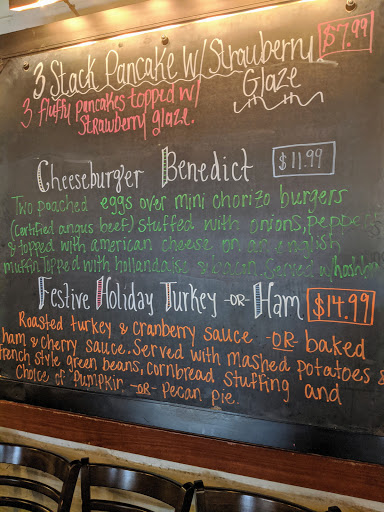 3 Stack Pancake w/ Strawberry $7.99
Glaze
3 fluffy pancakes topped w/
Strawberry glaze.
Cheeseburger Benedict $11.99
Two poached eggs over mini chorizo burgers
(certified angus beef) stuffed with onions, peppers
& topped with american cheese on an english
muffin Topped with hollandaise & bacon. Served w/
Festive Holiday Turkey -OR- Ham $14.99
Roasted turkey & cranberry sauce -OR- baked
ham & cherry sauce. Served with mashed potatoes &
french style green beans, cornbread stuffing and
choice of Pumpkin -OR- Pecan pie.